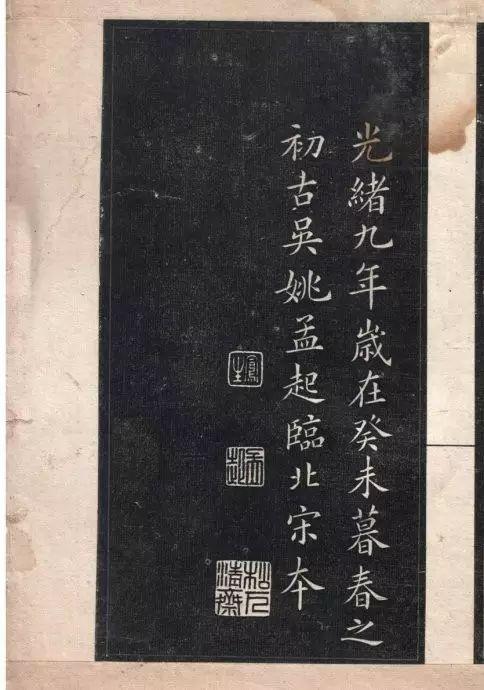 光緒九年歲在癸未暮春之
初古吳姚孟起臨北宋本
鳳生
孟起